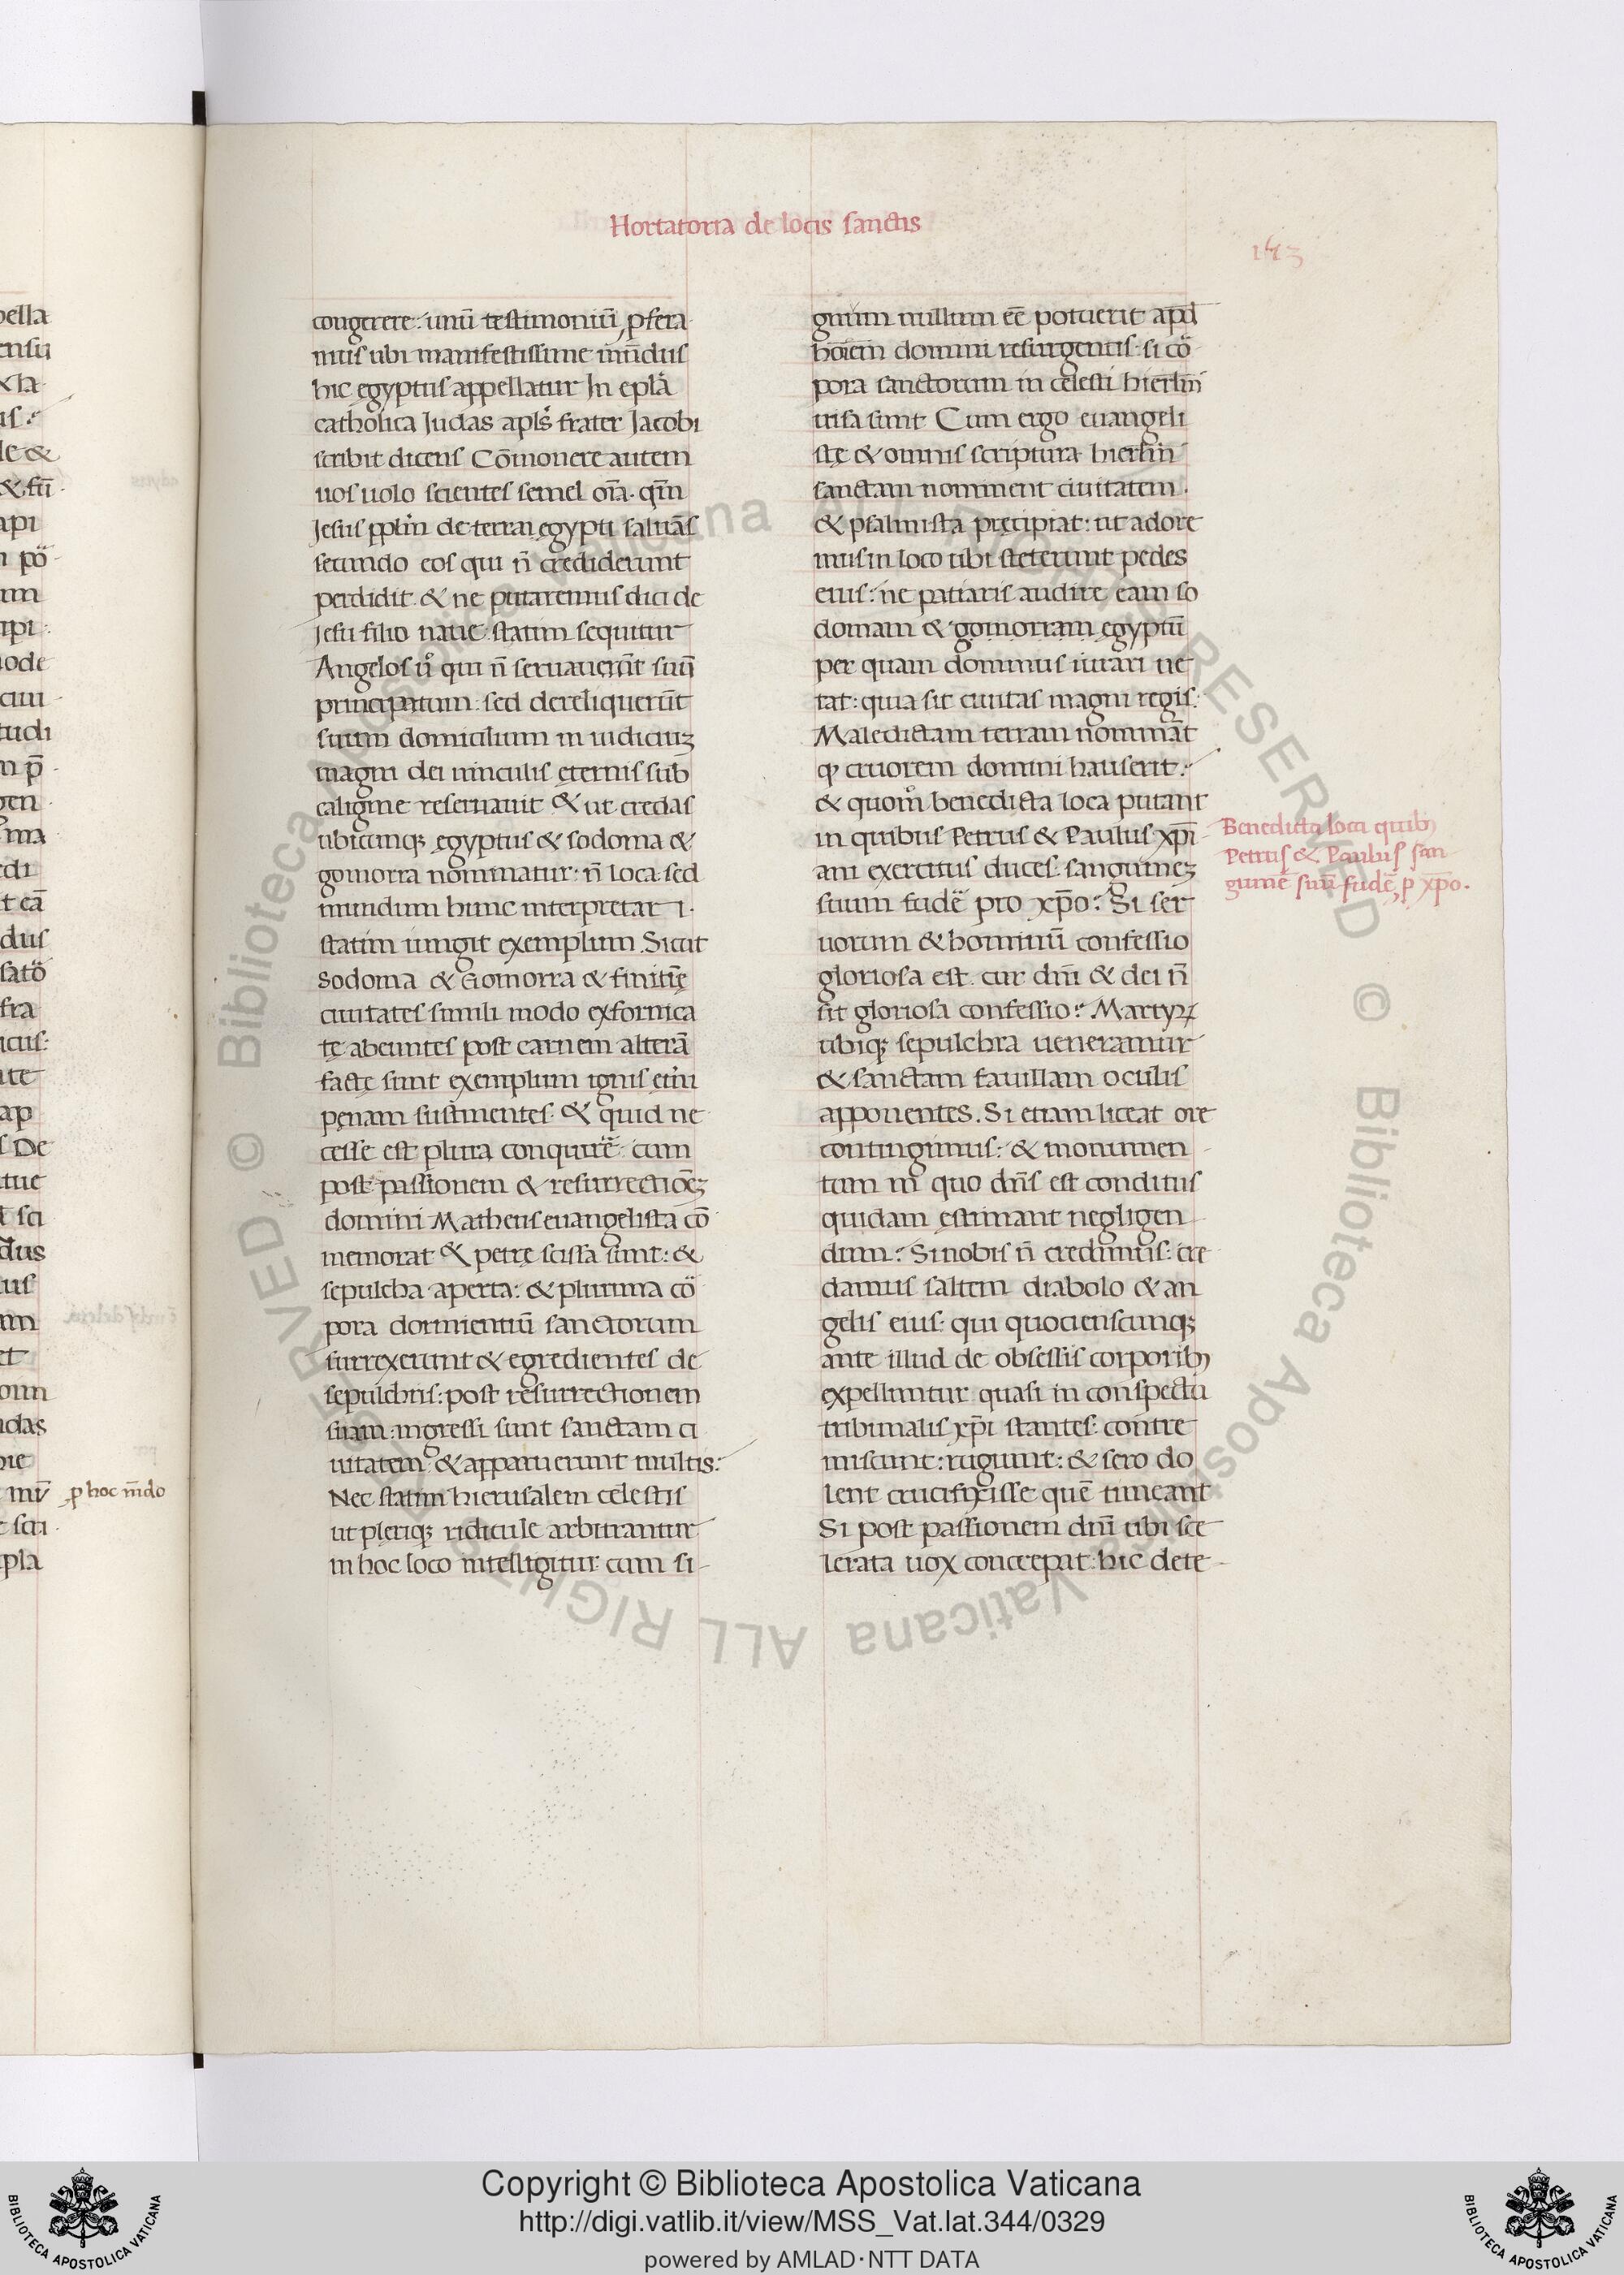 Hortatoria de locis sanctis
143
congerere: unū testimoniū ꝓfera
mus ubi manifestissime mūdus
hic egyptus appellatur In epl̄a
catholica Judas apl̄s frater Jacobi
scribit dicens Cōmonere autem
uos uolo scientes semel oīa. qm̄
Jesus ppl̄m de terra ęgypti saluās
secundo eos qui n̄ crediderunt
perdidit. & ne putaremus dici de
Jesu filio naue: statim sequitur
Angelos u̾o qui n̄ seruauerūt suū
principatum: sed dereliquerūt
suum domicilium in iudiciuꝫ
magni dei uinculis ęternis sub
caligine reseruauit & ut credas
ubicunqꝫ ęgyptus & sodoma &
gomorra nominatur: n̄ loca sed
mundum hunc interpretari.
statim iungit exemplum. Sicut
Sodoma & Gomorra & finitimę
ciuitates simili modo exfornica
tę abeuntes post carnem alterā
factę sunt exemplum ignis etn̄i
penam sustinentes. & quid ne
cesse est plura conquirē: cum
post passionem & resurrectiōeꝫ
domini Matheus euangelista cō
memorat & petrę scissa sunt: &
sepulcha aperta: & plurima cō
pora dormientiū sanctorum
surrexerunt & egredientes de
sepulchris: post resurrectionem
suam: ingressi sunt sanctam ci
uitatem: & apparuerunt multis:
Nec statim hierusalem cęlestis
ut plęriqꝫ ridicule arbitrantur
in hoc loco intelligitur: cum si
gnum nullum eē potuerit apd̄
hoīem domini resurgentis: si cō
pora sanctorum in cęlesti hierl̄m
uisa sunt Cum ergo euangeli
stę & omnis scriptura hierl̄m
sanctam nominent ciuitatem.
& psalmista pręcipiat: ut adore
mus in loco ubi steterunt pedes
eius: ne patiaris audire eam so
domam & gomorram ęgyptū
per quam dominus iurari ue
tat: quia sit ciuitas magni regis:
Maledictam terram nomināt
qꝫ cruorem domini hauserit:
& quom̊ benedicta loca putant
in quibus Petrus & Paulus xp̄i
ani exercitus duces: sanguineꝫ
suum fudē pro xp̄o: Si ser
uorum & hominū confessio
gloriosa est. cur dn̄i & dei n̄
sit gloriosa confessio: Martyꝝ
ubiqꝫ sepulchra ueneramur
& sanctam fauillam oculis
apponentes. Si etiam liceat ore
contingimus: & monumen
tum in quo dn̄s est conditus
quidam ęstimant negligen
dum: Si nobis n̄ credimus: cre
damus saltem diabolo & an
gelis eius: qui quocienscunqꝫ
ante illud de obsessis corporibꝫ
expelluntur quasi in conspectu
tribunalis xp̄i stantes: contre
miscunt: rugiunt: & sero do
lent crucifixisse quē timeant
Si post passionem dn̄i ubi sce
lerata uox concrepat: hic dete
Benedicta loca quibꝫ
Petrus & Paulus san
guinē suū fudē, ꝓ xp̄o.
ꝓ hoc mūdo
Copyright © Biblioteca Apostolica Vaticana
http://digi.vatlib.it/view/MSS_Vat.lat.344/0329
powered by AMLAD·NTT DATA
BIBLIOTECA APOSTOLICA VATICANA
BIBLIOTECA APOSTOLICA VATICANA
© Biblioteca Apostolica Vaticana ALL RIGHTS RESERVED © Biblioteca Apostolica Vaticana ALL RIGHTS RESERVED